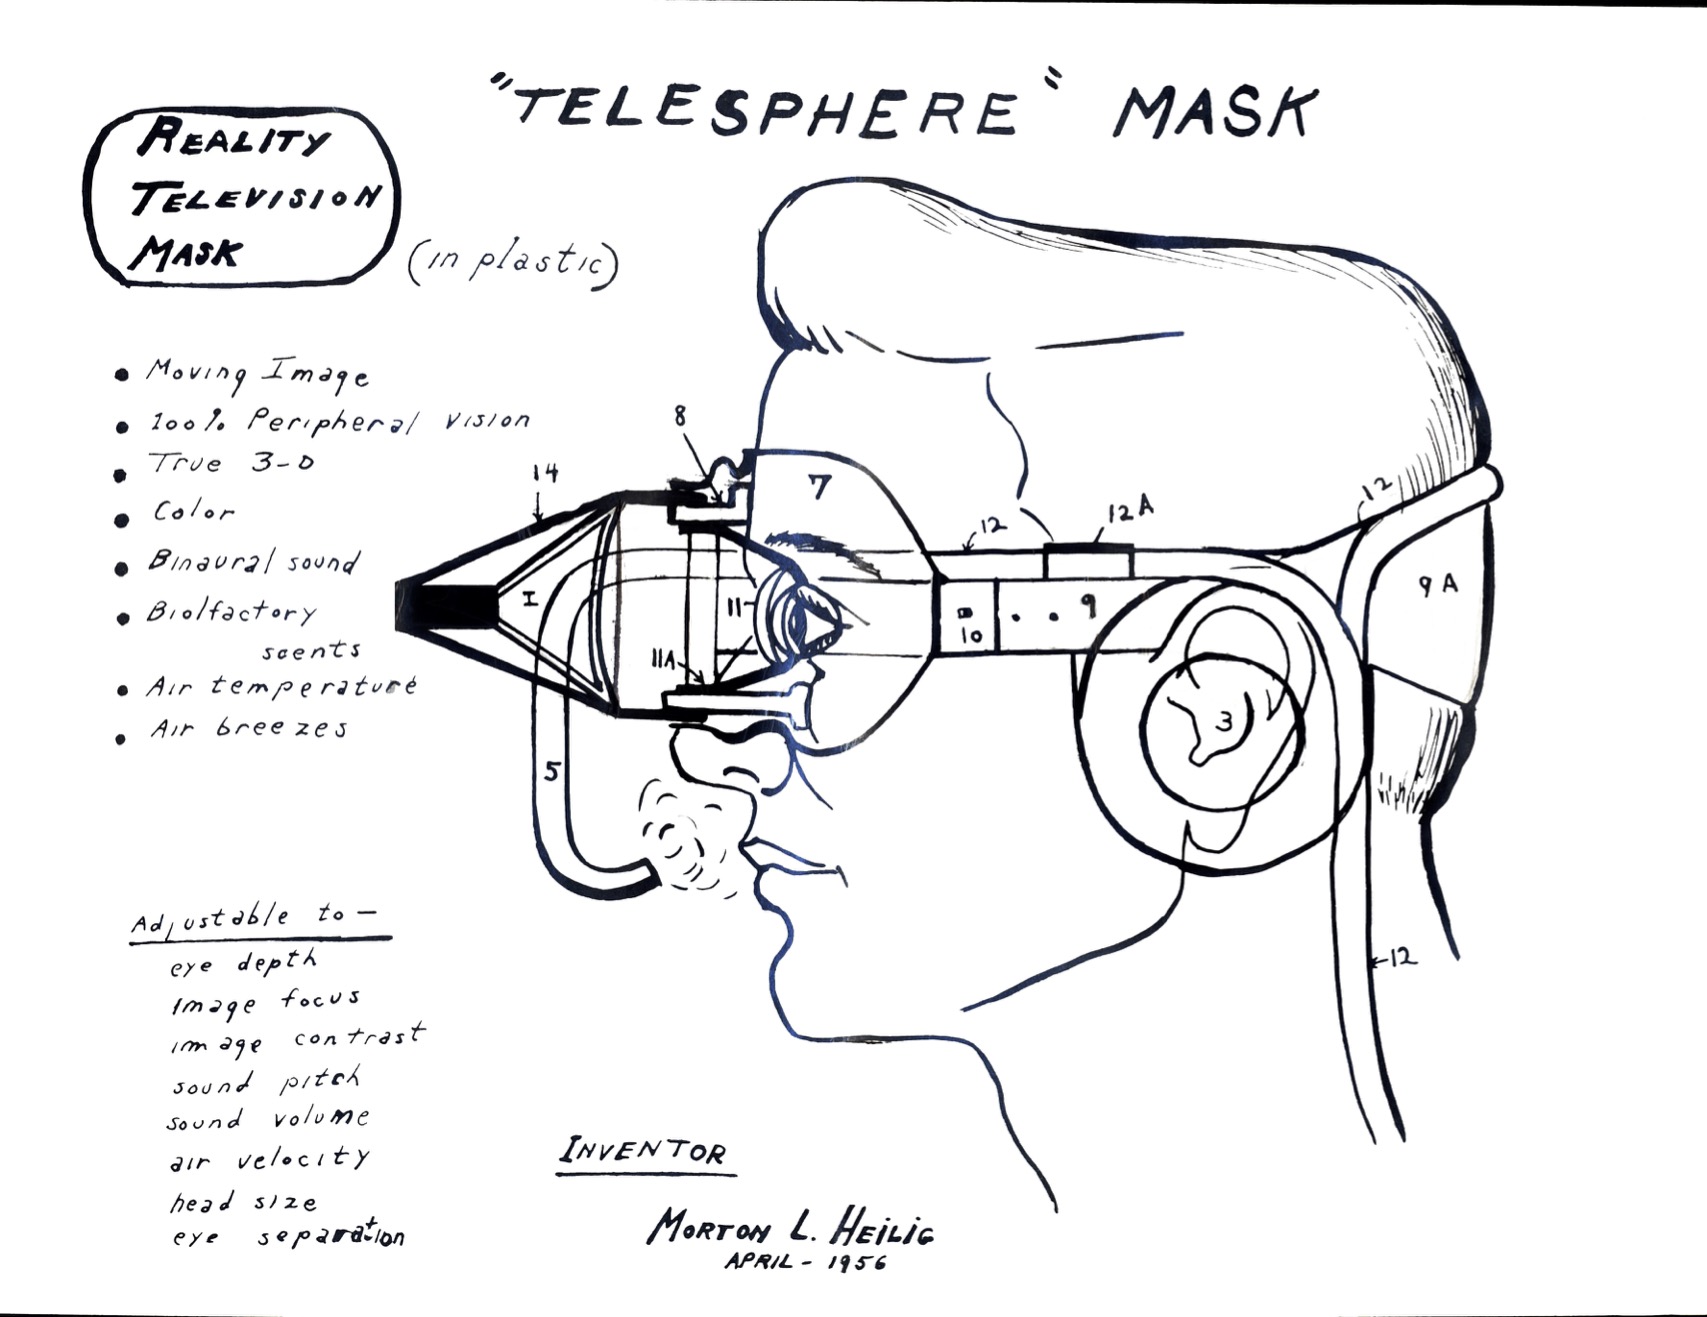 "TELESPHERE" MASK
REALITY
TELEVISION
MASK
(in plastic)
• Moving Image
• 100% Peripheral vision
• True 3-D
• Color
• Binaural sound
• Biolfactory
scents
• Air temperature
• Air breezes
8
14
7
12
12A
12
I
11
11A
10
9
9A
3
5
12
Adjustable to —
eye depth
image focus
image contrast
sound pitch
sound volume
air velocity
head size
eye separation
INVENTOR
MORTON L. HEILIG
APRIL - 1956